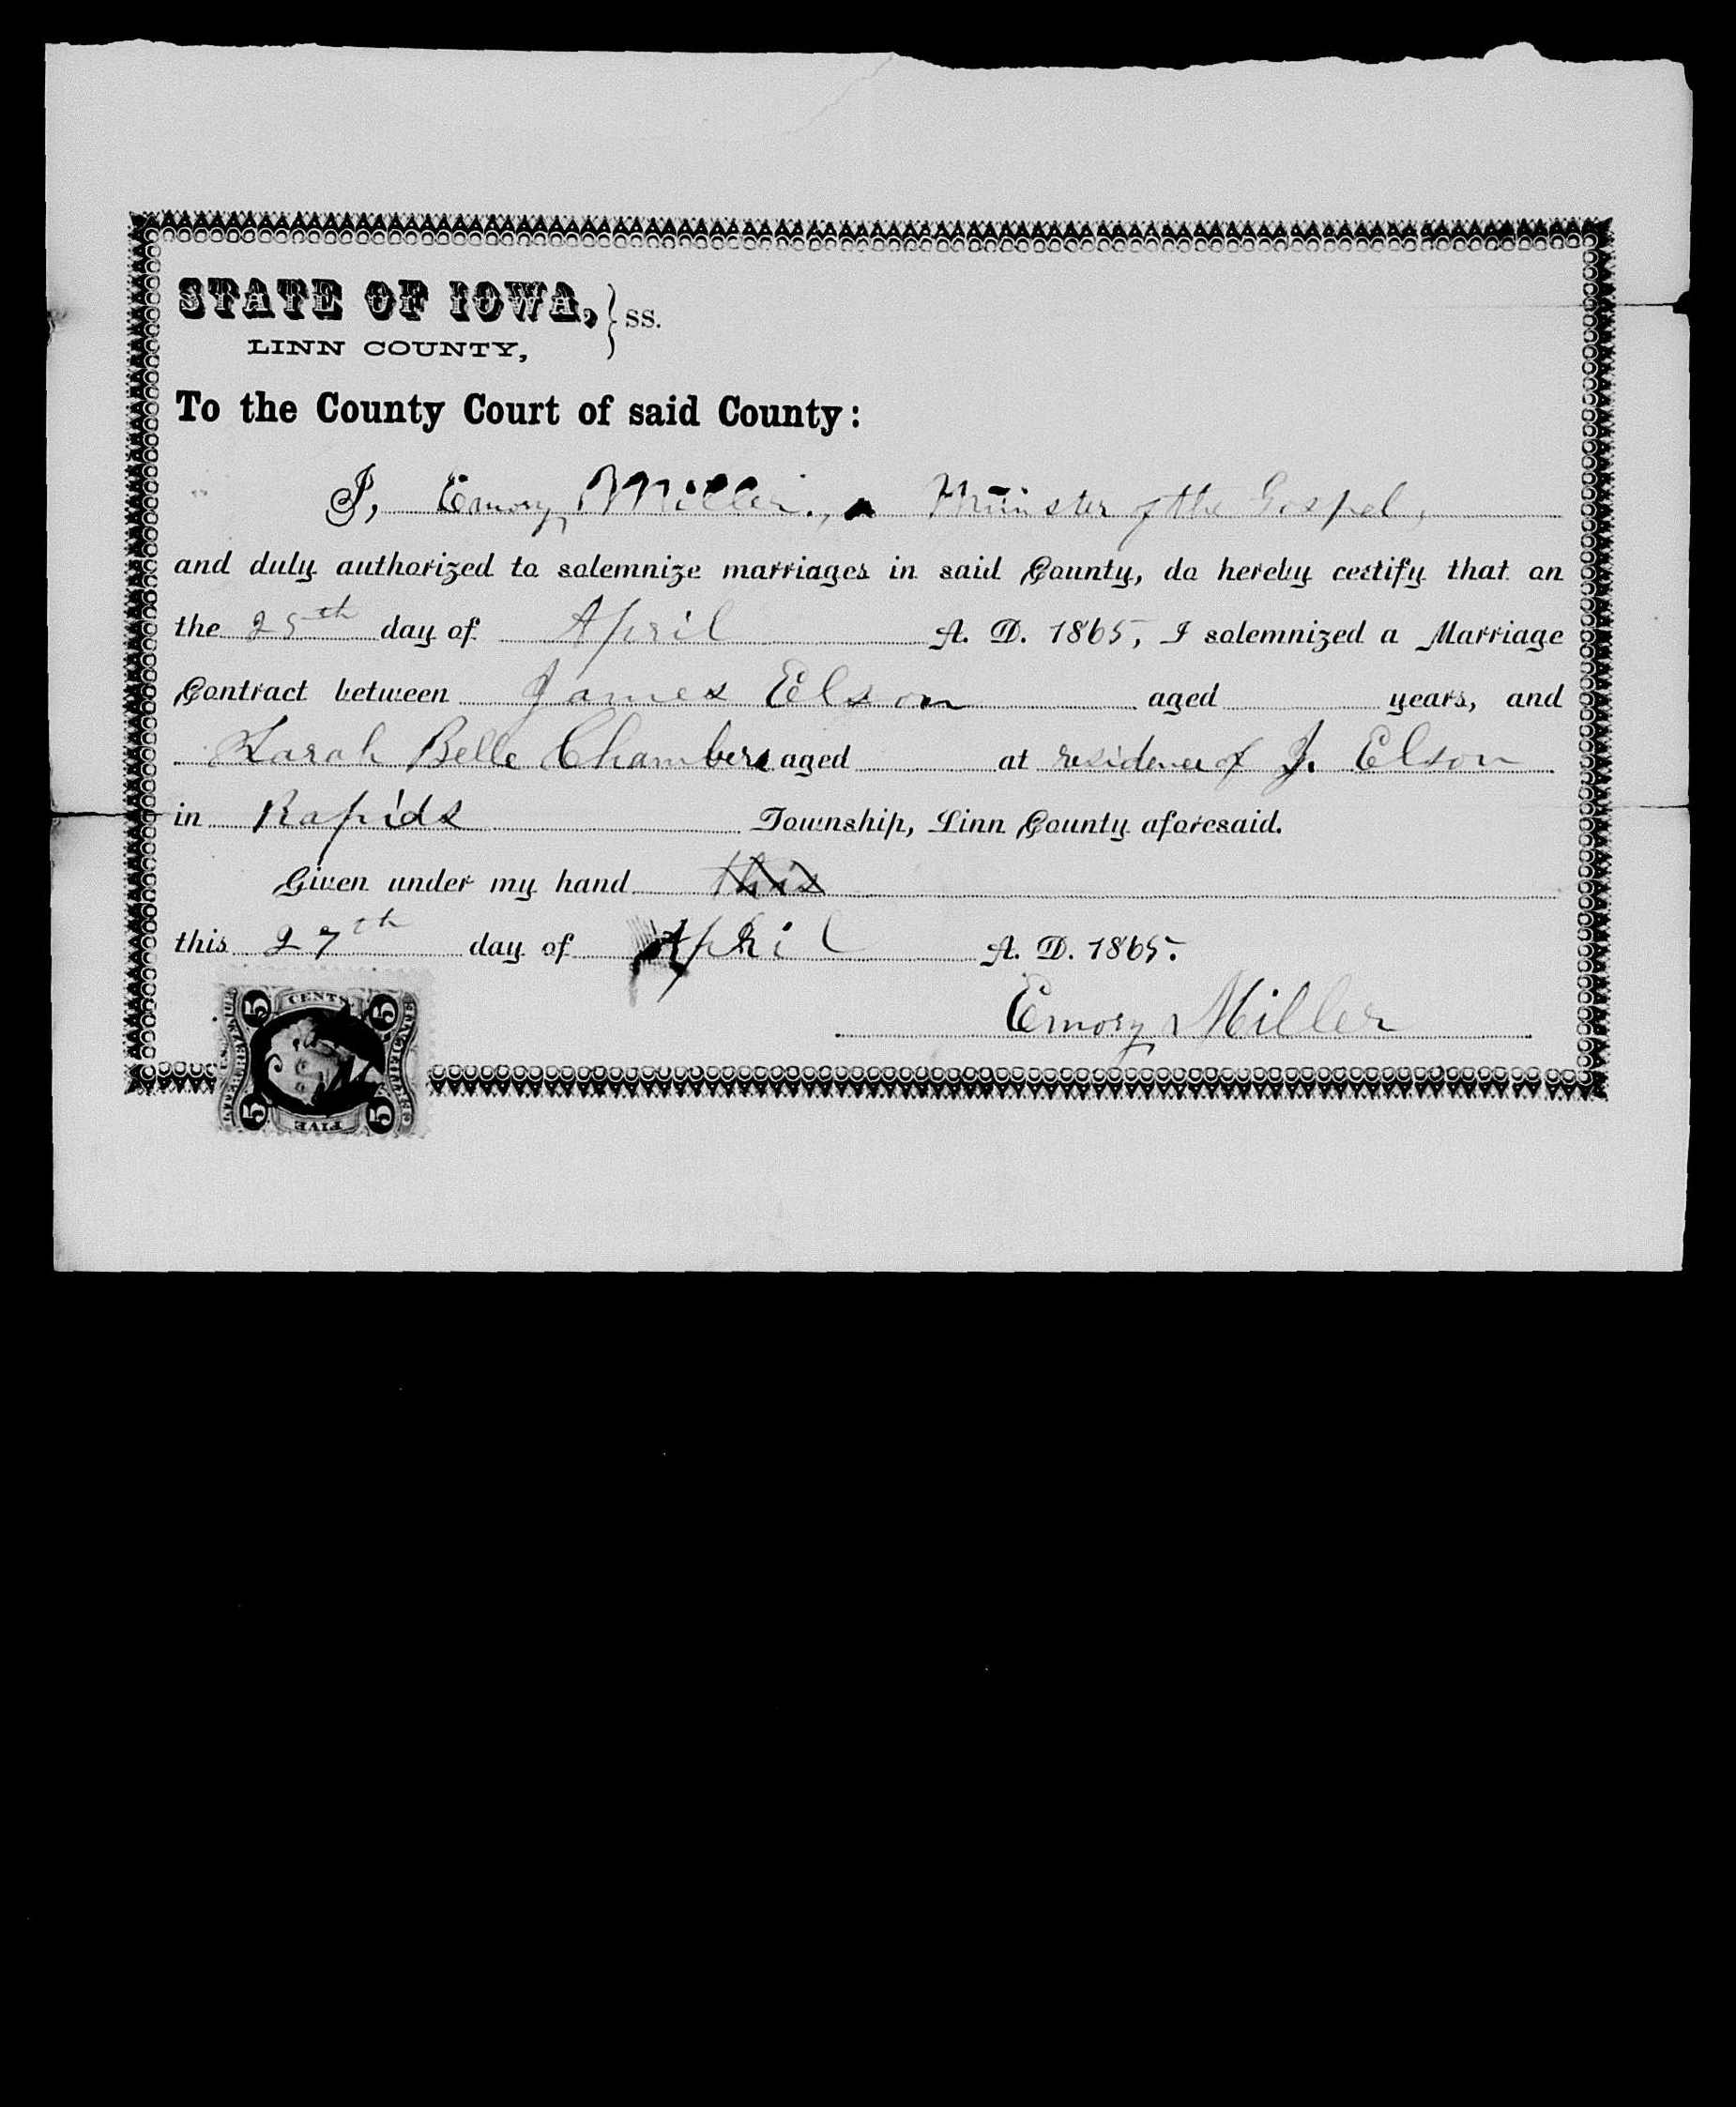 STATE OF IOWA, } SS.
LINN COUNTY,
To the County Court of said County:
I, Emory Miller., a Minister of the Gospel,
and duly authorized to solemnize marriages in said County, do hereby certify that on
the 25th day of April A. D. 1865, I solemnized a Marriage
Contract between James Elson aged years, and
Sarah Belle Chambers aged at residence of J. Elson
in Rapids Township, Linn County aforesaid.
Given under my hand this
this 27th day of April A. D. 1865.
Emory Miller
5 CENTS 5
5 FIVE 5